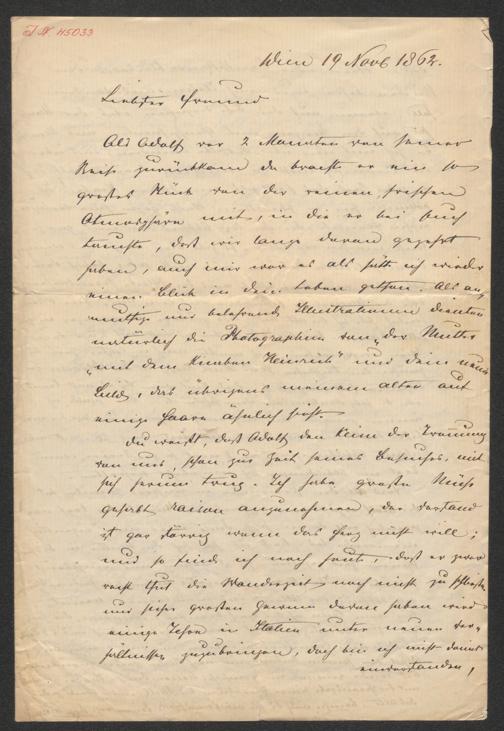 I N 45033
Wien 19 Nov 1862.
Liebster Freund
Als Adolf vor 2 Monaten von seiner
Reise zurückkam da brachte er ein so
großes Stück von der reinen frischen
Atmosphäre mit, in die er bei Euch
tauchte, daß wir lange daran gezehrt
haben, auch mir war es als hätt ich wieder
einen Blick in dein Leben gethan. Als an-
muthige und belehrende Illustrationen dienten
natürlich die Photographien von „der Mutter
„mit dem Knaben Heinrich" und dein neues
Bild, das übrigens meinem alten auf
einige Haare ähnlich sieht.
Du weißt, daß Adolf den Keim der Trennung
von uns, schon zur Zeit seines Besuches, mit
sich herum trug. Ich habe große Mühe
gehabt raison anzunehmen, der Verstand
ist gar störrig wenn das Herz nicht will;
und so finde ich noch heute, daß er zwar
recht thut die Wanderzeit noch nicht zu schließen
und sicher großen Gewinn davon haben wird
einige Jahre in Italien unter neuen Ver-
hältnissen zuzubringen, doch bin ich nicht damit
einverstanden,